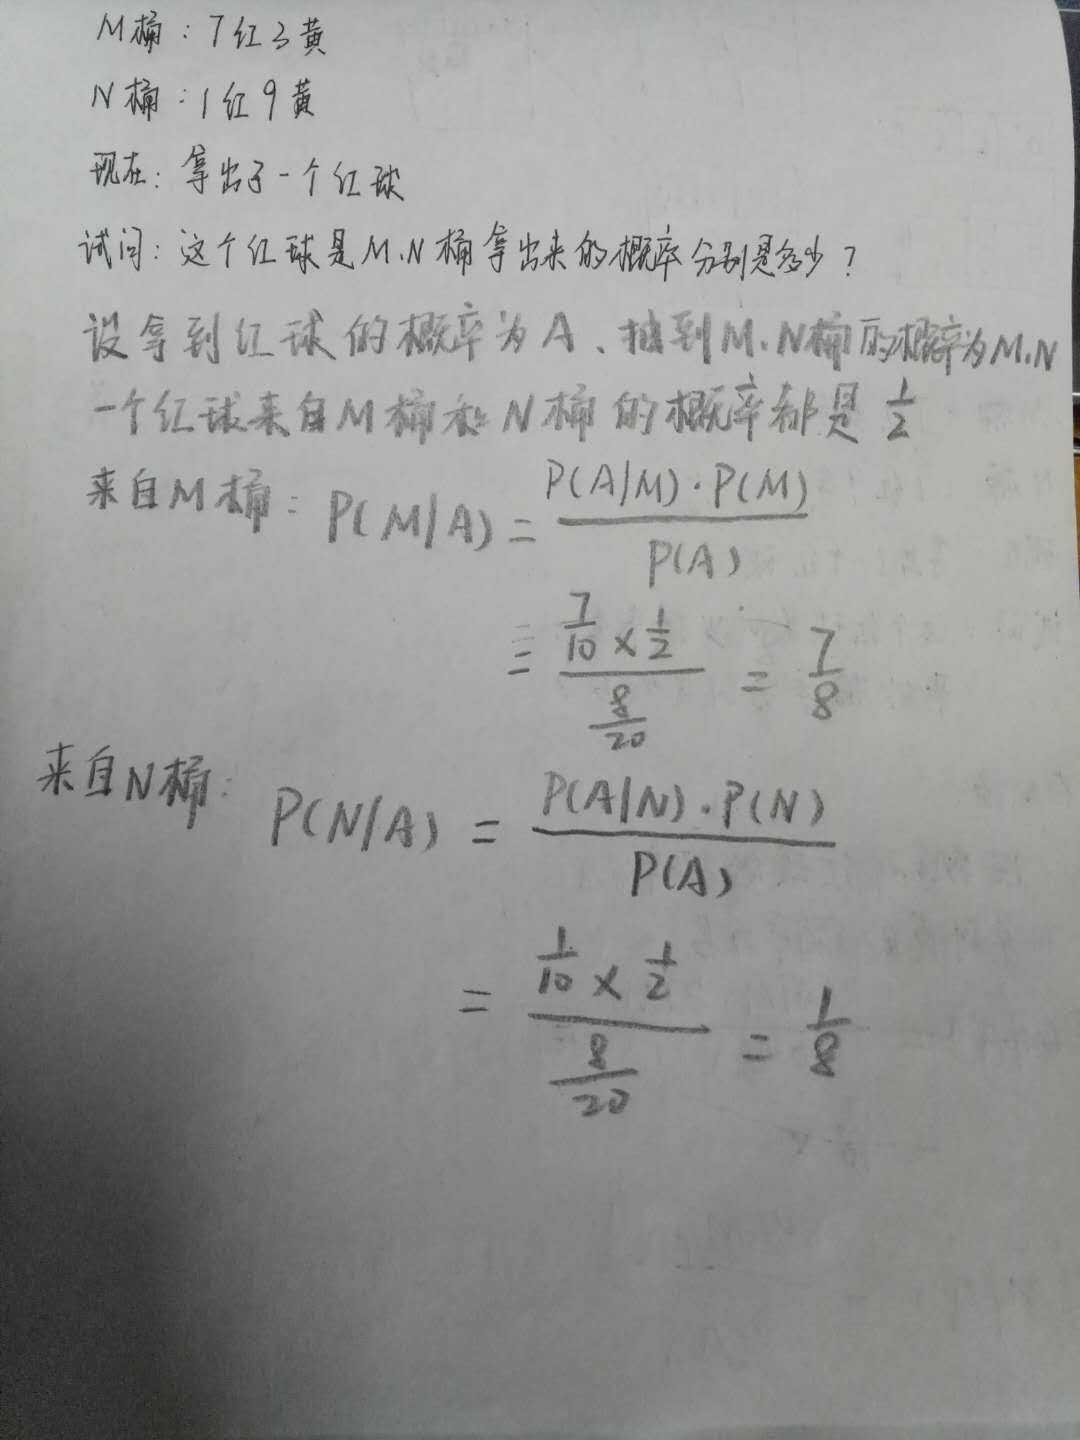 M桶：7红3黄
N桶：1红9黄
现在：拿出了一个红球
试问：这个红球是M.N桶拿出来的概率分别是多少？
设拿到红球的概率为A、抽到M.N桶的概率为M.N
一个红球来自M桶和N桶的概率都是 1/2
来自M桶：P(M/A) = P(A/M)·P(M) / P(A)
= 7/10 × 1/2 / 8/20 = 7/8
来自N桶：P(N/A) = P(A/N)·P(N) / P(A)
= 1/10 × 1/2 / 8/20 = 1/8